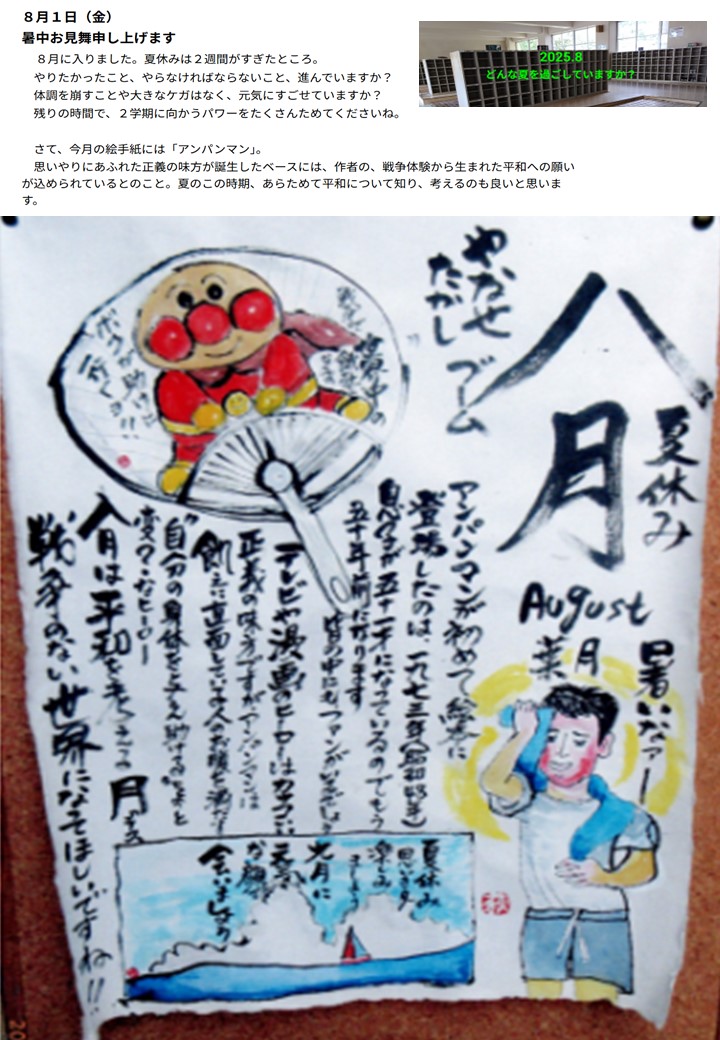 ８月１日（金）
暑中お見舞申し上げます
８月に入りました。夏休みは２週間がすぎたところ。
やりたかったこと、やらなければならないこと、進んでいますか？
体調を崩すことや大きなケガはなく、元気にすごせていますか？
残りの時間で、２学期に向かうパワーをたくさんためてくださいね。
2025.8
どんな夏を過ごしていますか？
さて、今月の絵手紙には「アンパンマン」。
思いやりにあふれた正義の味方が誕生したベースには、作者の、戦争体験から生まれた平和への願い
が込められているとのこと。夏のこの時期、あらためて平和について知り、考えるのも良いと思いま
す。
八月
夏休み
August
葉月
暑いなァー
やなせ
たかし ブーム
ボクが助けに
行くョ!!
アンパンマンが初めて絵本に
登場したのは、一九七三年(昭和48年)
五十年前になります
テレビや漫画のヒーローは
正義の味方ですがアンパンマンは
飢えに直面している人の
自分の身体を与え助ける
変わったヒーロー
八月は平和を考える月
戦争のない世界になってほしいですね!!
夏休み
思いきり
楽しみ
ましょう
九月に
元気
な顔で
会いましょう